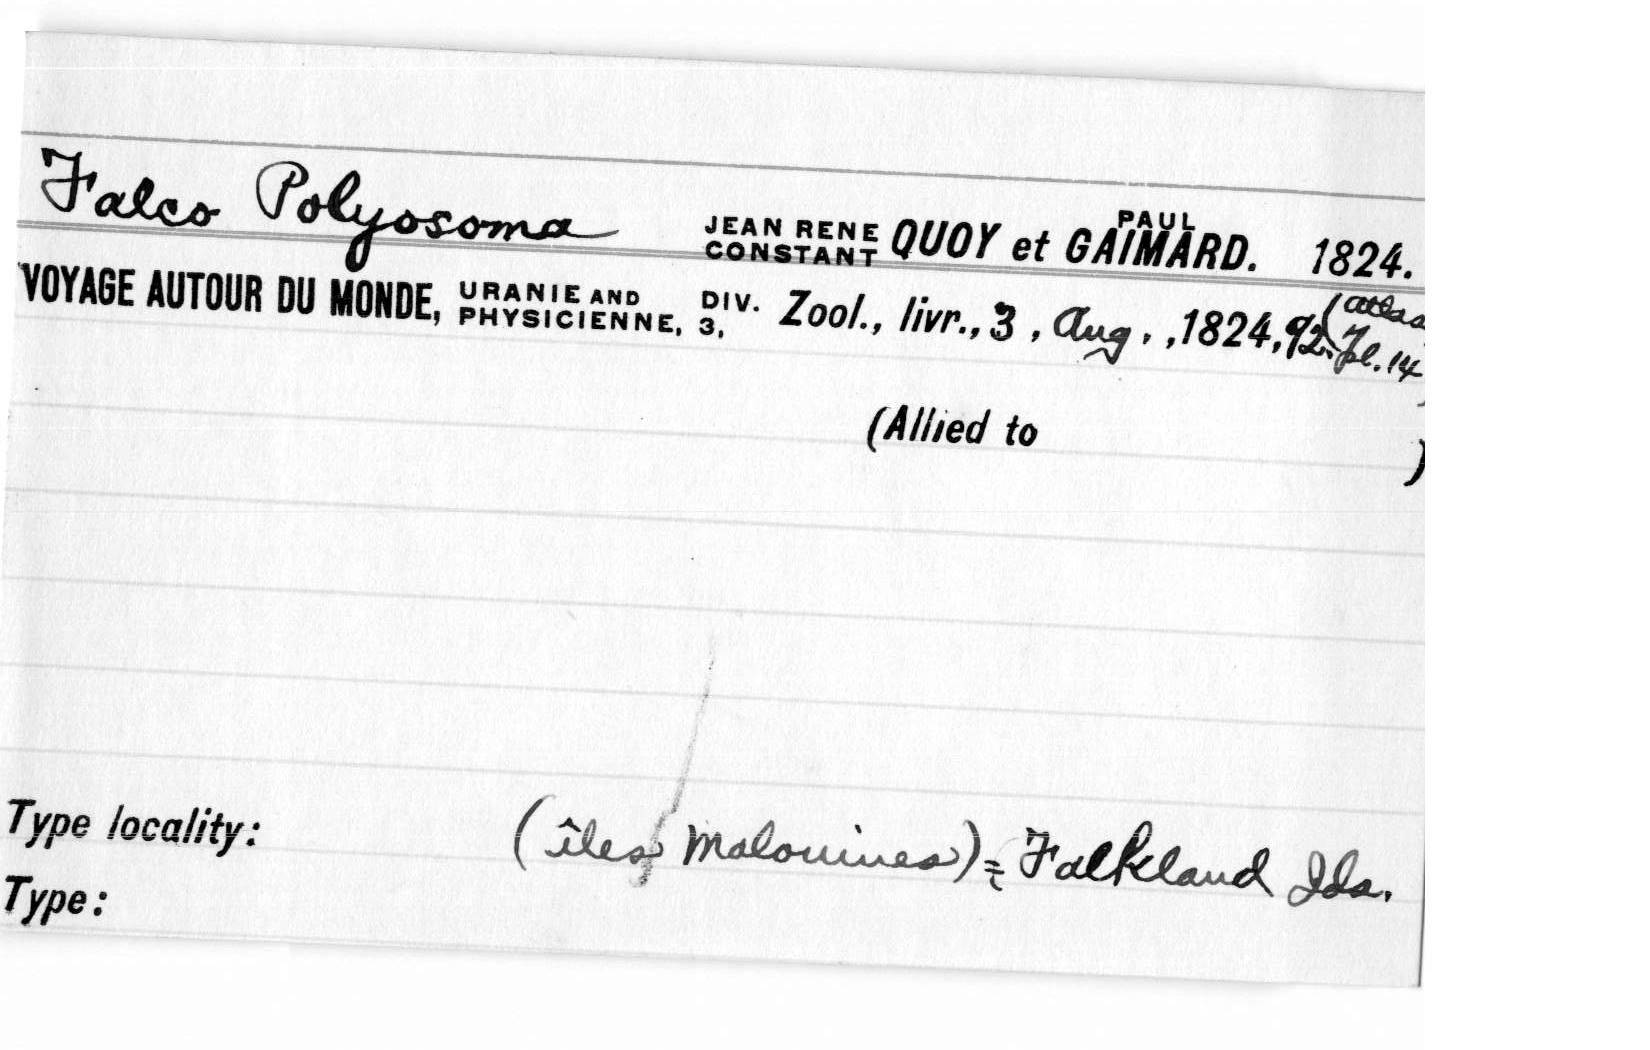 Falco Polyosoma JEAN RENE CONSTANT QUOY et PAUL GAIMARD. 1824.
VOYAGE AUTOUR DU MONDE, URANIE AND PHYSICIENNE, DIV. 3, Zool., livr., 3, Aug., ,1824, 92. (atlas pl. 14)
(Allied to )
Type locality: (îles Malouines) = Falkland Ids.
Type: